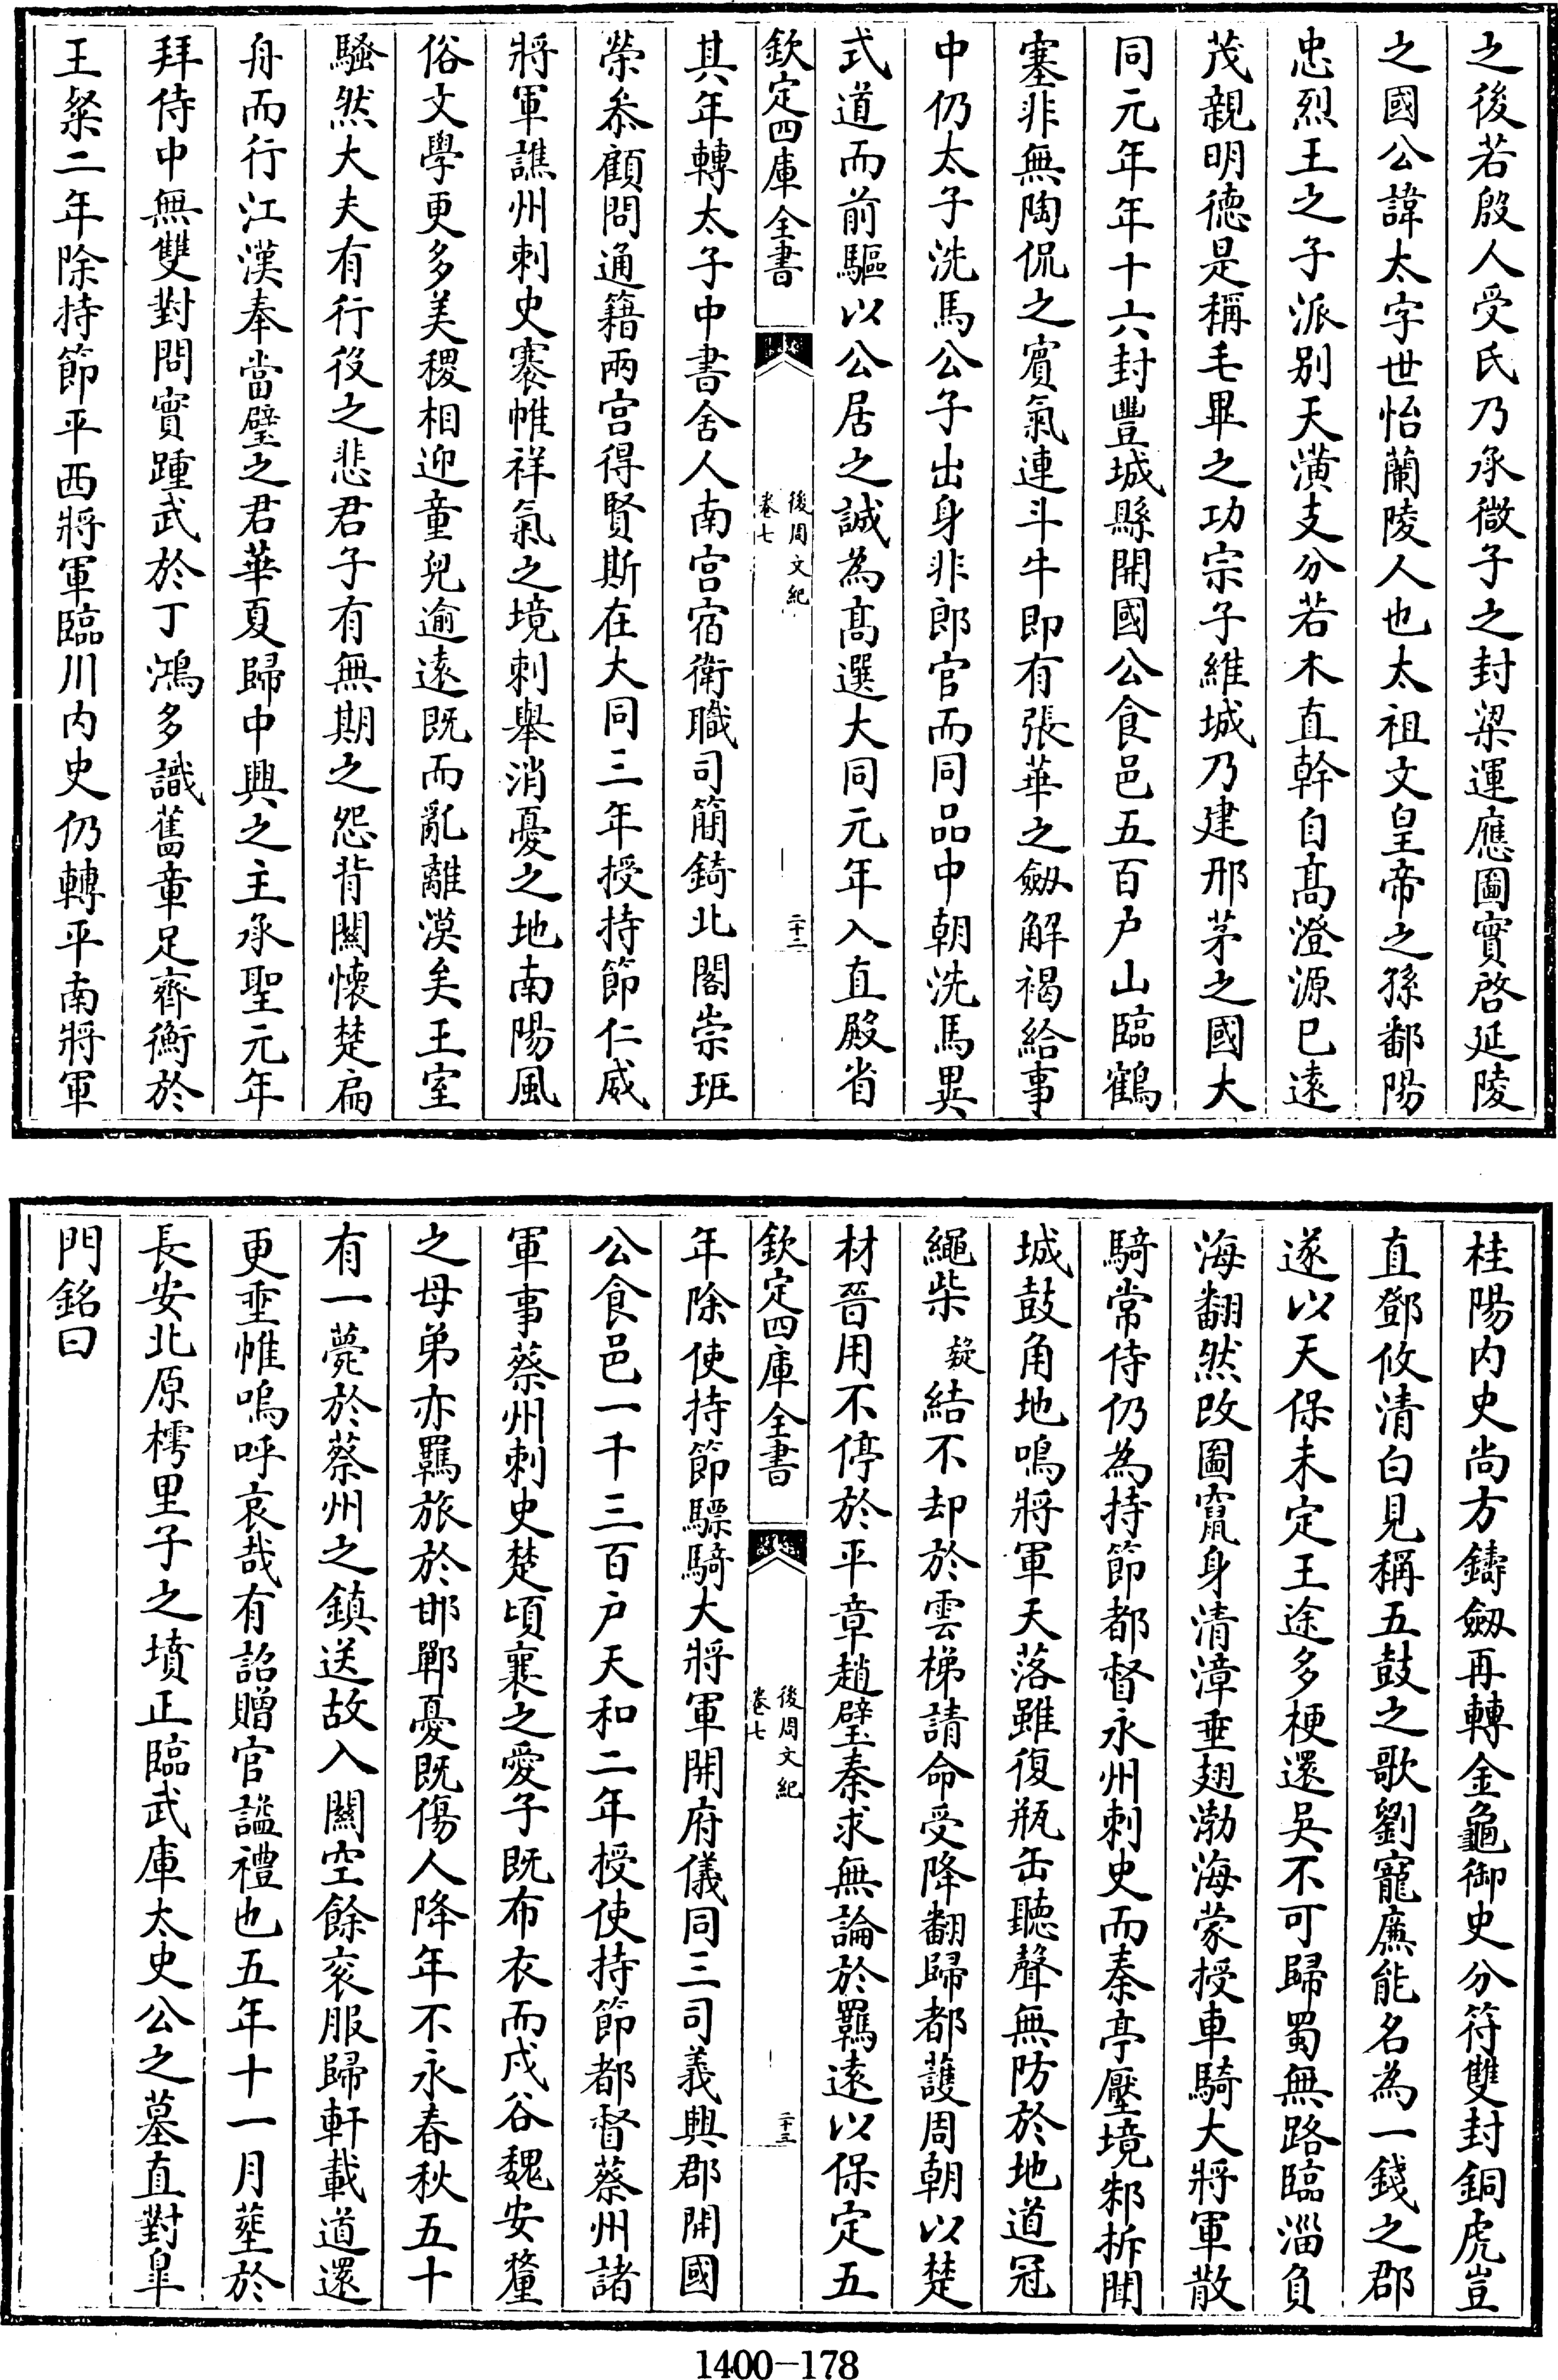 之後若殷人受氏乃承微子之封梁運應圖實啓延陵
之國公諱太字世怡蘭陵人也太祖文皇帝之孫鄱陽
忠烈王之子派别天潢支分若木直幹自髙澄源已遠
茂親明德是稱毛畢之功宗子維城乃建邢茅之國大
同元年年十六封豐城縣開國公食邑五百户山臨鶴
塞非無陶侃之賓氣連斗牛即有張華之劔解褐給事
中仍太子洗馬公子出身非郎官而同品中朝洗馬異
式道而前驅以公居之誠為髙選大同元年入直殿省
欽定四庫全書
後周文紀
卷七
二十二
其年轉太子中書舍人南宫宿衛職司簡錡北閣崇班
榮叅顧問通籍兩宫得賢斯在大同三年授持節仁威
將軍譙州刺史褰帷祥氣之境刺舉消憂之地南陽風
俗文學更多美稷相迎童兒逾遠既而亂離漠矣王室
騷然大夫有行役之悲君子有無期之怨背闗懐楚扁
舟而行江漢奉當璧之君華夏歸中興之主承聖元年
拜侍中無雙對問實踵武於丁鴻多識舊章足齊衡於
王粲二年除持節平西將軍臨川内史仍轉平南將軍
桂陽内史尚方鑄劔再轉金龜御史分符雙封銅虎豈
直鄧攸清白見稱五鼓之歌劉寵亷能名為一錢之郡
遂以天保未定王途多梗還吳不可歸蜀無路臨淄負
海翻然改圖竄身清漳垂翅渤海蒙授車騎大將軍散
騎常侍仍為持節都督永州刺史而秦亭壓境邾柝聞
城鼓角地鳴將軍天落雖復瓶缶聽聲無防於地道冠
繩柴疑結不却於雲梯請命受降翻歸都護周朝以楚
材晉用不停於平章趙璧秦求無論於羈遠以保定五
欽定四庫全書
後周文紀
卷七
二十三
年除使持節驃騎大將軍開府儀同三司義興郡開國
公食邑一千三百户天和二年授使持節都督蔡州諸
軍事蔡州刺史楚頃襄之愛子既布衣而戍谷魏安釐
之母弟亦羈旅於邯鄲憂既傷人降年不永春秋五十
有一薨於蔡州之鎮送故入闗空餘衮服歸軒載道還
更垂帷嗚呼哀哉有詔贈官諡禮也五年十一月塟於
長安北原樗里子之墳正臨武庫太史公之墓直對臯
門銘曰
1400-178